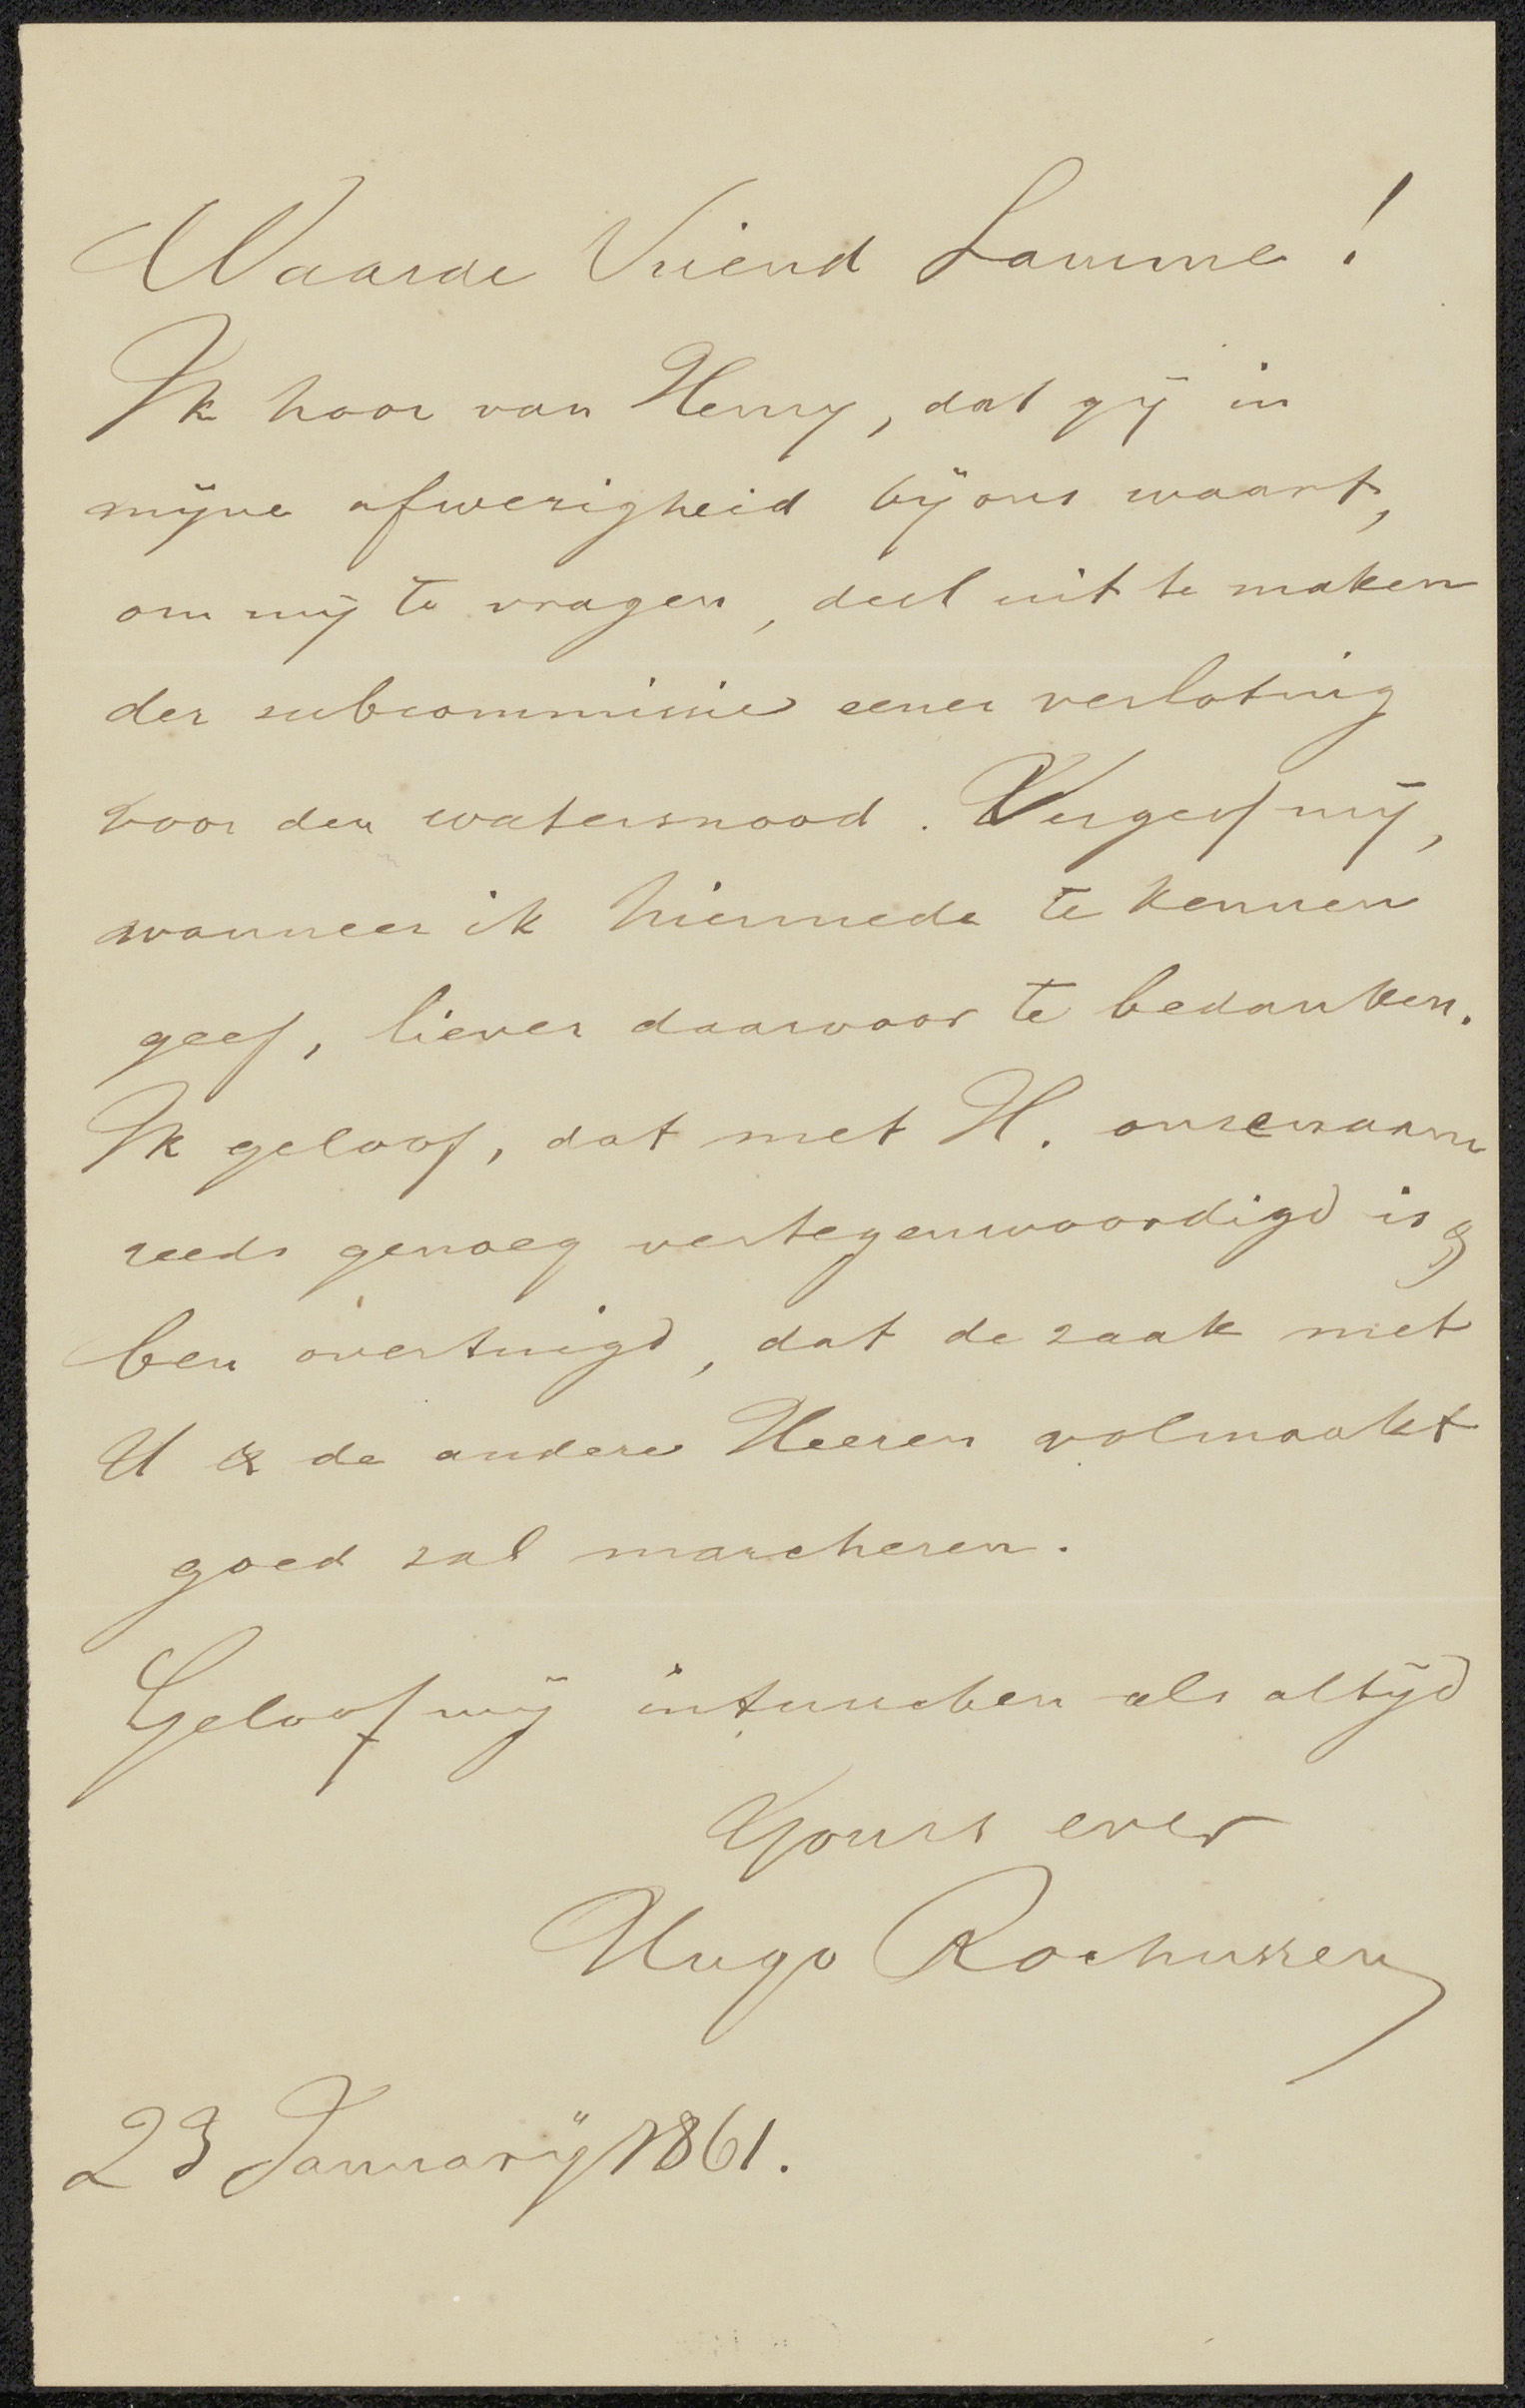 Waarde Vriend Lamme!
Ik hoor van Henry, dat gij in
mijne afwezigheid bij ons waart,
om mij te vragen, deel uit te maken
der subcommissie eener verloting
voor den watersnood. Vergeef mij,
wanneer ik hiermede te kennen
geef, liever daarvoor te bedanken.
Ik geloof, dat met H. onze naam
reeds genoeg vertegenwoordigd is &
ben overtuigd, dat de zaak met
U & de andere Heeren volmaakt
goed zal marcheren.
Geloof mij intusschen als altijd
Yours ever
Hugo Rochussen
23 Januarij 1861.